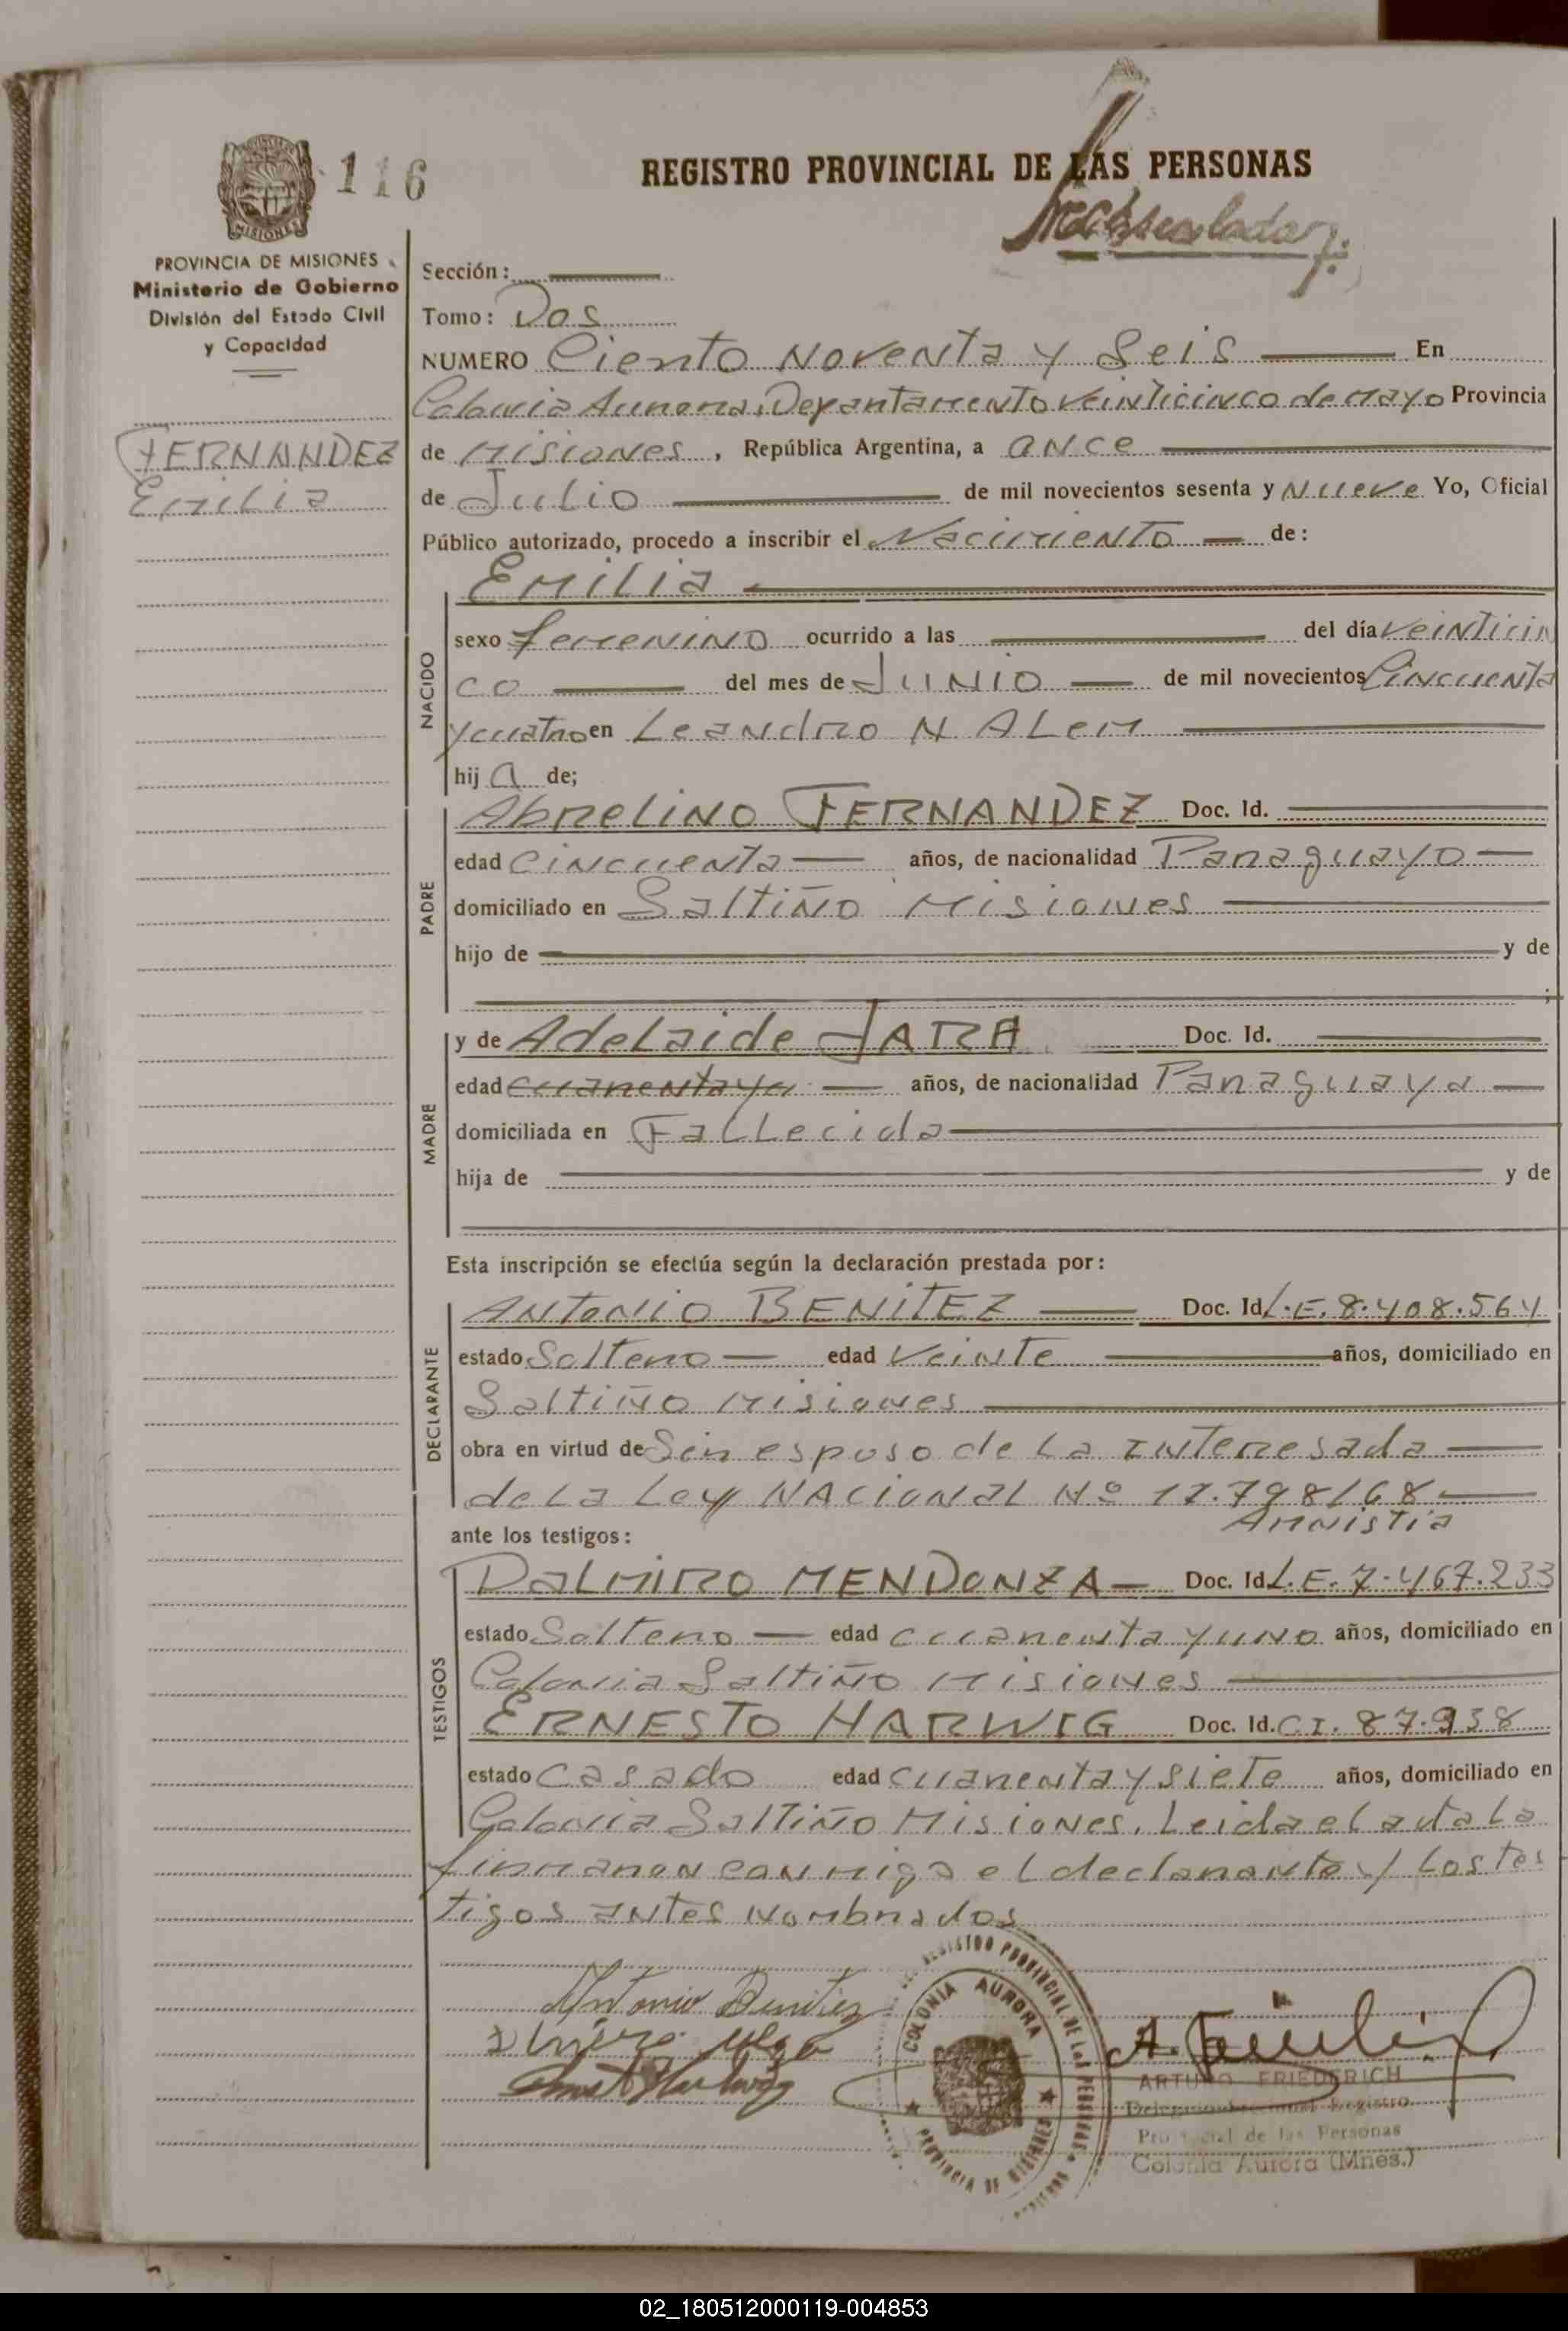 116
REGISTRO PROVINCIAL DE LAS PERSONAS
MISIONES
PROVINCIA DE MISIONES
Ministerio de Gobierno
División del Estado Civil
y Capacidad
FERNANDEZ
Emilia
Sección:
Tomo: Dos
NUMERO Ciento Noventa y Seis En
Colonia Aurora, Departamento Veinticinco de Mayo Provincia
de Misiones, República Argentina, a once
de Julio de mil novecientos sesenta y Nueve Yo, Oficial
Público autorizado, procedo a inscribir el Nacimiento de:
NACIDO
Emilia
sexo femenino ocurrido a las del día veinticin
co del mes de Junio de mil novecientos Cincuenta
y cuatro en Leandro N Alem
hij a de;
PADRE
Abrelino FERNANDEZ Doc. Id.
edad Cincuenta años, de nacionalidad Paraguayo
domiciliado en Saltiño Misiones
hijo de y de
;
MADRE
y de Adelaide JARA Doc. Id.
edad años, de nacionalidad Paraguaya
domiciliada en Fallecida
hija de y de
Esta inscripción se efectúa según la declaración prestada por:
DECLARANTE
Antonio BENITEZ Doc. Id L.E. 8.408.564
estado Soltero edad Veinte años, domiciliado en
Saltiño Misiones
obra en virtud de esposo de la interesada
de la Ley Nacional Nº 17.798/68
Amnistia
ante los testigos:
TESTIGOS
Dalmiro MENDONZA Doc. Id L.E. 7.467.233
estado Soltero edad cuarenta y uno años, domiciliado en
Colonia Saltiño Misiones
ERNESTO HARWIG Doc. Id. C.I. 87.938
estado Casado edad cuarenta y siete años, domiciliado en
Colonia Saltiño Misiones. Leida el acta la
firmaron conmigo el declarante y los tes
tigos antes nombrados
Antonio Benitez
REGISTRO PROVINCIAL DE LAS PERSONAS
COLONIA AURORA
PROVINCIA DE MISIONES
ARTURO FRIEDERICH
Provincial de las Personas
Colonia Aurora (Mnes.)
02_180512000119-004853